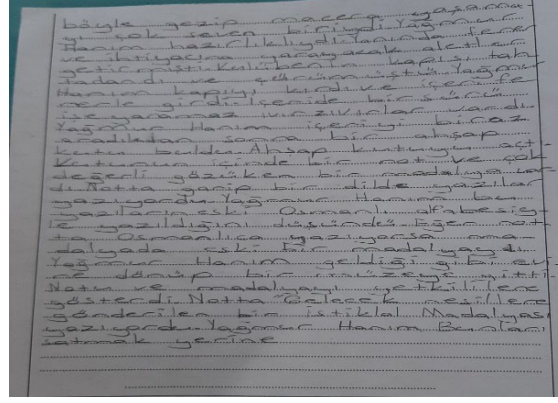 böyle gezip macera yaşama-
yı çok seven biriydi. Yağmur
Hanım hazırlıklıydı. Yanında fener
ve ihtiyacına yarayacak aletler
getirmişti. Kulübenin kapısı tah-
tadandı ve çürümüştü. Yağmur
Hanım kapıyı kırdı ve içeri fe-
nerle girdi. İçeride bir sürü
işe yaramaz ıvır zıvırlar vardı.
Yağmur Hanım içeriyi biraz
aradıktan sonra bir ahşap
kutu buldu. Ahşap kutuyu aç-
Kutunun içinde bir not ve çok
değerli gözüken bir madalya var
dı. Notta garip bir dilde yazılar
yazıyordu. Yağmur Hanım bu
yazıların eski Osmanlı alfabesiy-
le yazıldığını düşündü. Eğer not-
ta Osmanlıca yazıyorsa ma-
dalyada eski bir madalyaydı.
Yağmur Hanım geldiği gibi evi-
ne dönüp bir müzeye gitti.
Notu ve madalyayı yetkililere
gösterdi. Notta "Gelecek nesillere
gönderilen bir İstiklal Madalyası
yazıyordu. Yağmur Hanım Bunları
satmak yerine